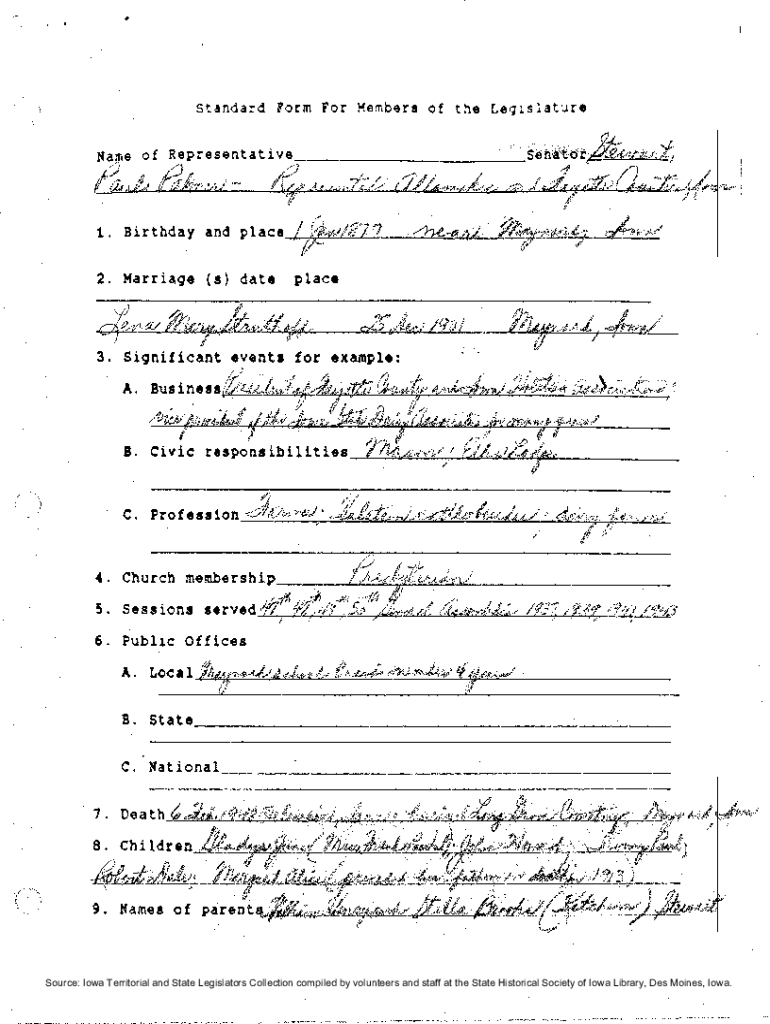 Standard Form For Members of the Legislature
Name of Representative Senator Stewart,
Paul Palmer - Represented Allamakee and Fayette Counties, Iowa
1. Birthday and place 1 Jan 1877 near Maynard, Iowa
2. Marriage (s) date place
Lena Mary 25 Dec 1901 Maynard, Iowa
3. Significant events for example:
A. Business President of Fayette County and Iowa Holstein Associations;
vice president of the Iowa State Dairy Association for many years
B. Civic responsibilities Mason; Elks Lodge
C. Profession Farmer; Holstein cattle breeder - dairy farmer
4. Church membership Presbyterian
5. Sessions served General Assemblies 1937, 1939, 1941, 1943
6. Public Offices
A. Local Maynard school board member 6 years
B. State
C. National
7. Death 6 Feb. Iowa; buried Long Grove Cemetery, Maynard, Iowa
8. Children Gladys (Mrs. Frank John Howard; Paul;
Robert Dale; Margaret Alice (preceded her father in death, 1913)
9. Names of parents Stella Brooks (Ketchum) Stewart
Source: Iowa Territorial and State Legislators Collection compiled by volunteers and staff at the State Historical Society of Iowa Library, Des Moines, Iowa.